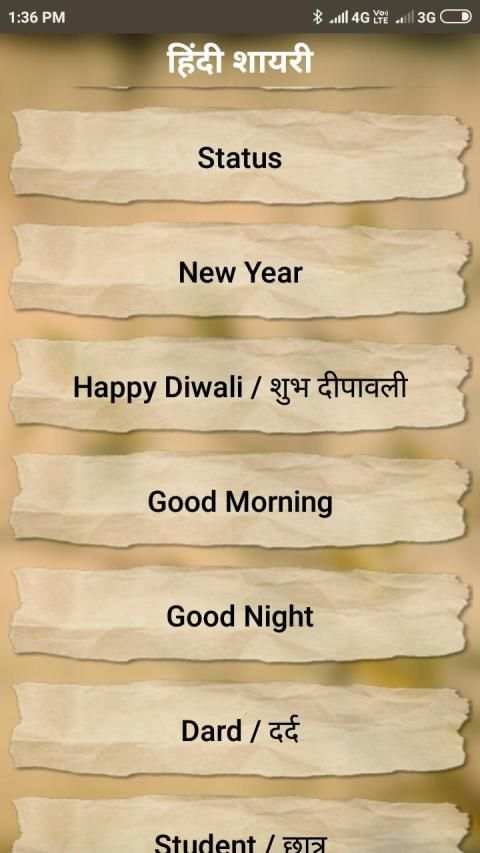 1:36 PM 4G VoLTE 3G
हिंदी शायरी
Status
New Year
Happy Diwali / शुभ दीपावली
Good Morning
Good Night
Dard / दर्द
Student / छात्र